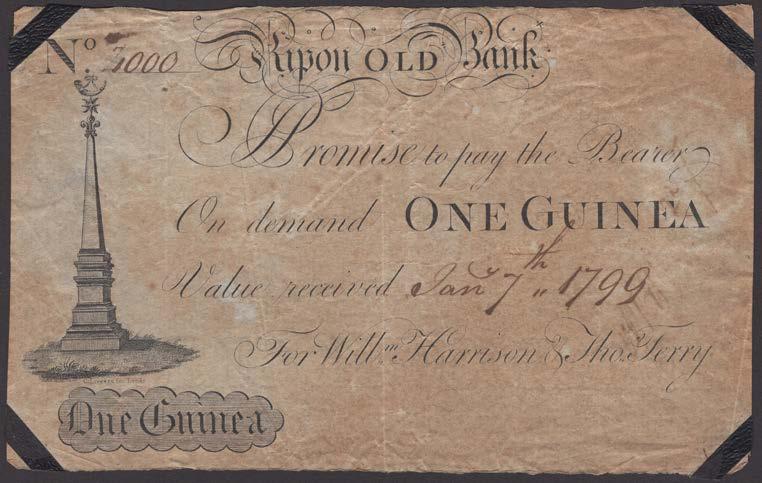 No. 3000 Ripon OLD Bank
I Promise to pay the Bearer
On demand ONE GUINEA
Value received Jany 7th 1799
For Willm. Harrison & Thos. Terry
One Guinea